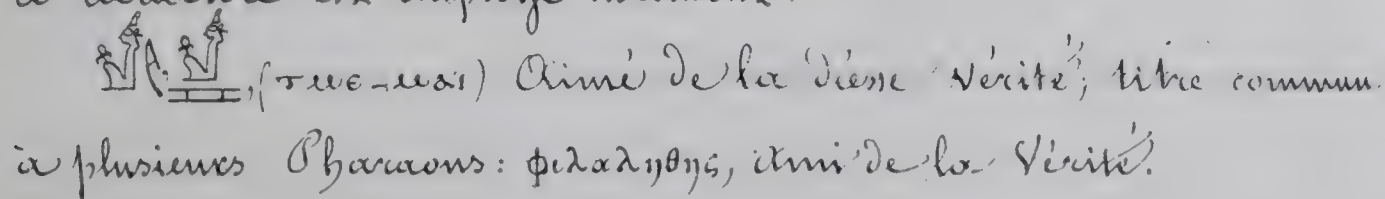 est employé
(ⲧⲙⲉ-ⲙⲁⲓ) Aimé de la déesse Vérité; titre commun
à plusieurs Pharaons: φιλαληθης, Ami de la Vérité.